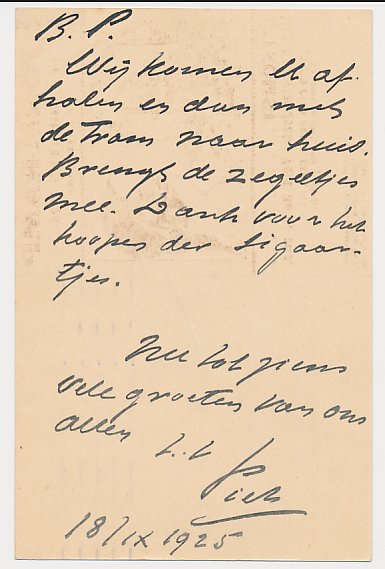 B. P.
Wij komen U af-
halen en dan met
de Tram naar huis.
Brengt de zegeltjes
mee. Dank voor het
koopen der Sigaar-
tjes.
Nu tot ziens
vele groeten van ons
allen
Piet
18/IX 1925